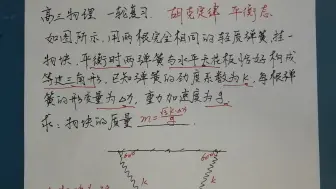 高三物理 一轮复习. 胡克定律 平衡态.
如图所示,用两根完全相同的轻质弹簧挂一
物块,平衡时两弹簧与水平天花板恰好构成
等边三角形,已知弹簧的劲度系数为k,每根弹
簧的形变量为Δl,重力加速度为g
求:物块的质量 m=√3k·Δl/g
60° 60°
k k